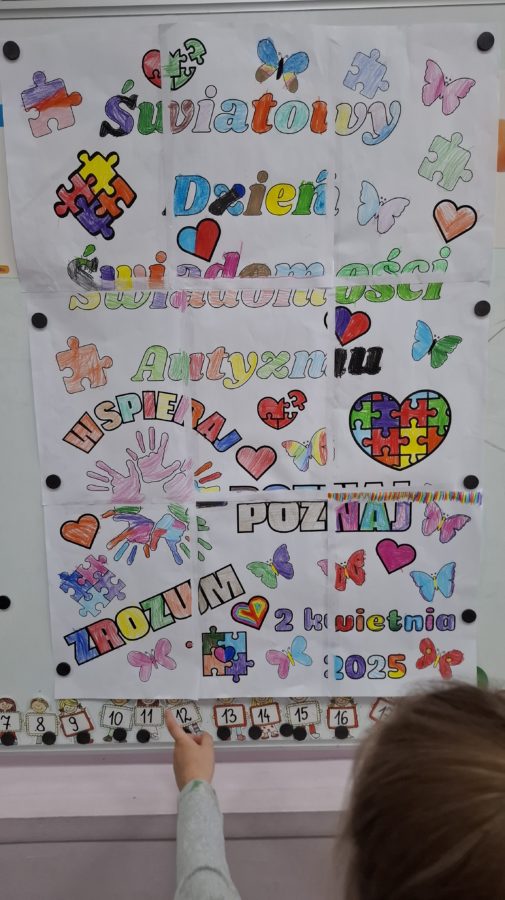 Światowy
Dzień
Świadomości
Autyzmu
WSPIERAJ
POZNAJ
ZROZUM
2 kwietnia
2025
7 8 9 10 11 12 13 14 15 16